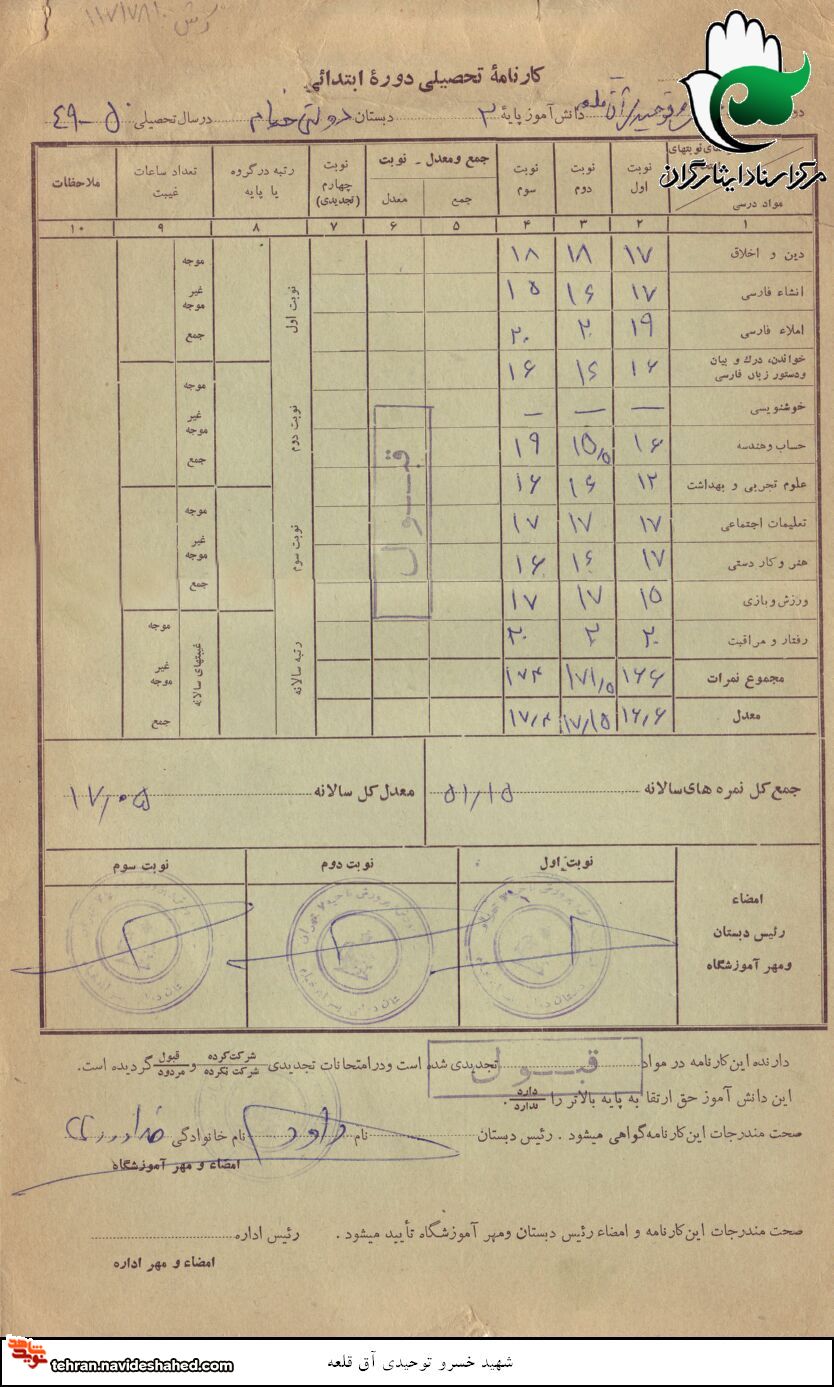 کارنامهٔ تحصیلی دورهٔ ابتدائی
توحیدی آق قلعه دانش آموز پایهٔ ۳ دبستان دولتی خیام در سال تحصیلی ۵۰-۴۹
مرکز اسناد ایثارگران
مواد درسی نوبت اول نوبت دوم نوبت سوم جمع و معدل - نوبت جمع معدل نوبت چهارم (تجدیدی) رتبه در گروه یا پایه تعداد ساعات غیبت ملاحظات
۱ ۲ ۳ ۴ ۵ ۶ ۷ ۸ ۹ ۱۰
دین و اخلاق ۱۷ ۱۸ ۱۸
انشاء فارسی ۱۷ ۱۶ ۱۵
املاء فارسی ۱۹ ۲۰ ۲۰
خواندن، درك و بیان ودستور زبان فارسی ۱۶ ۱۶ ۱۶
خوشنویسی — — —
حساب وهندسه ۱۶ ۱۵/۵ ۱۹
علوم تجربی و بهداشت ۱۲ ۱۶ ۱۶
تعلیمات اجتماعی ۱۷ ۱۷ ۱۷
هنر و کار دستی ۱۷ ۱۶ ۱۶
ورزش و بازی ۱۵ ۱۷ ۱۷
رفتار و مراقبت ۲۰ ۲۰ ۲۰
مجموع نمرات ۱۶۶ ۱۷۱/۵ ۱۷۴
معدل ۱۶/۶ ۱۷/۱۵ ۱۷/۴
قبول
نوبت اول موجه غیر موجه جمع
نوبت دوم موجه غیر موجه جمع
نوبت سوم موجه غیر موجه جمع
رتبه سالانه غیبتهای سالانه موجه غیر موجه جمع
جمع کل نمره های سالانه ۵۱/۱۵ معدل کل سالانه ۱۷/۰۵
نوبت اول نوبت دوم نوبت سوم
امضاء
رئیس دبستان
ومهر آموزشگاه
دارنده این کارنامه در مواد تجدیدی شده است ودر امتحانات تجدیدی شرکت کرده شرکت نکرده و قبول مردود گردیده است.
قبول
این دانش آموز حق ارتقا به پایه بالاتر را دارد ندارد.
صحت مندرجات این کارنامه گواهی میشود . رئیس دبستان نام داود نام خانوادگی
امضاء و مهر آموزشگاه
صحت مندرجات این کارنامه و امضاء رئیس دبستان ومهر آموزشگاه تأیید میشود . رئیس اداره
امضاء و مهر اداره
شهید خسرو توحیدی آق قلعه
نوید شاهد
tehran.navideshahed.com